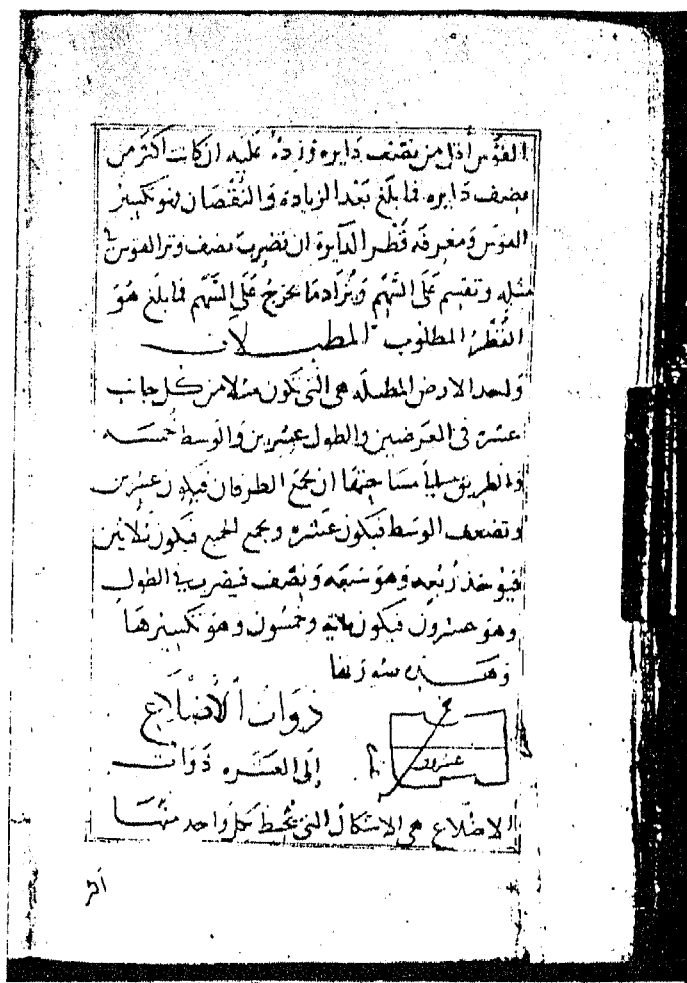 القوس أقل من نصف دايره وزده عليه ان كانت اكثر من
نصف دايره فما بلغ بعد الزيادة والنقصان فهو تكسير
القوس ومعرفة قطر الدايرة ان تضرب نصف وتر القوس في
مثله وتقسم على السهم ويزاد ما يخرج على السهم فما بلغ هو
القطر المطلوب المطبلات
الارض المطبله هي التي تكون مثلا من كل جانب
عشره في العرضين والطول عشرين والوسط خمسه
والطريق مساحتها ان يجمع الطرفان فيكون عشرين
وتضعف الوسط فيكون عشره ويجمع الجميع فيكون ثلاثين
فيوخذ ربعه وهو سبعه ونصف فيضرب في الطول
وهو عشرون فيكون مايه وخمسون وهو تكسيرها
وهذه صورتها
ذوات الأضلاع
عشرون
إلى العشره ذوات
الاضلاع هي الاشكال التي يحيط بكل واحد منها